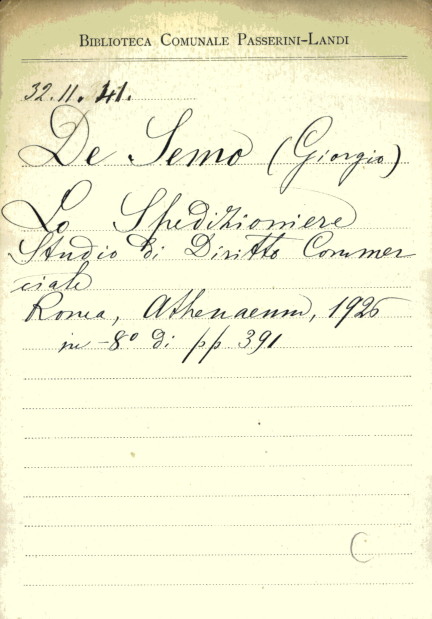 BIBLIOTECA COMUNALE PASSERINI-LANDI
32.11.41.
De Semo (Giorgio)
Lo Spedizioniere
Studio di Diritto Commer
ciale
Roma, Athenaeum, 1926
in-8° di pp 391
C